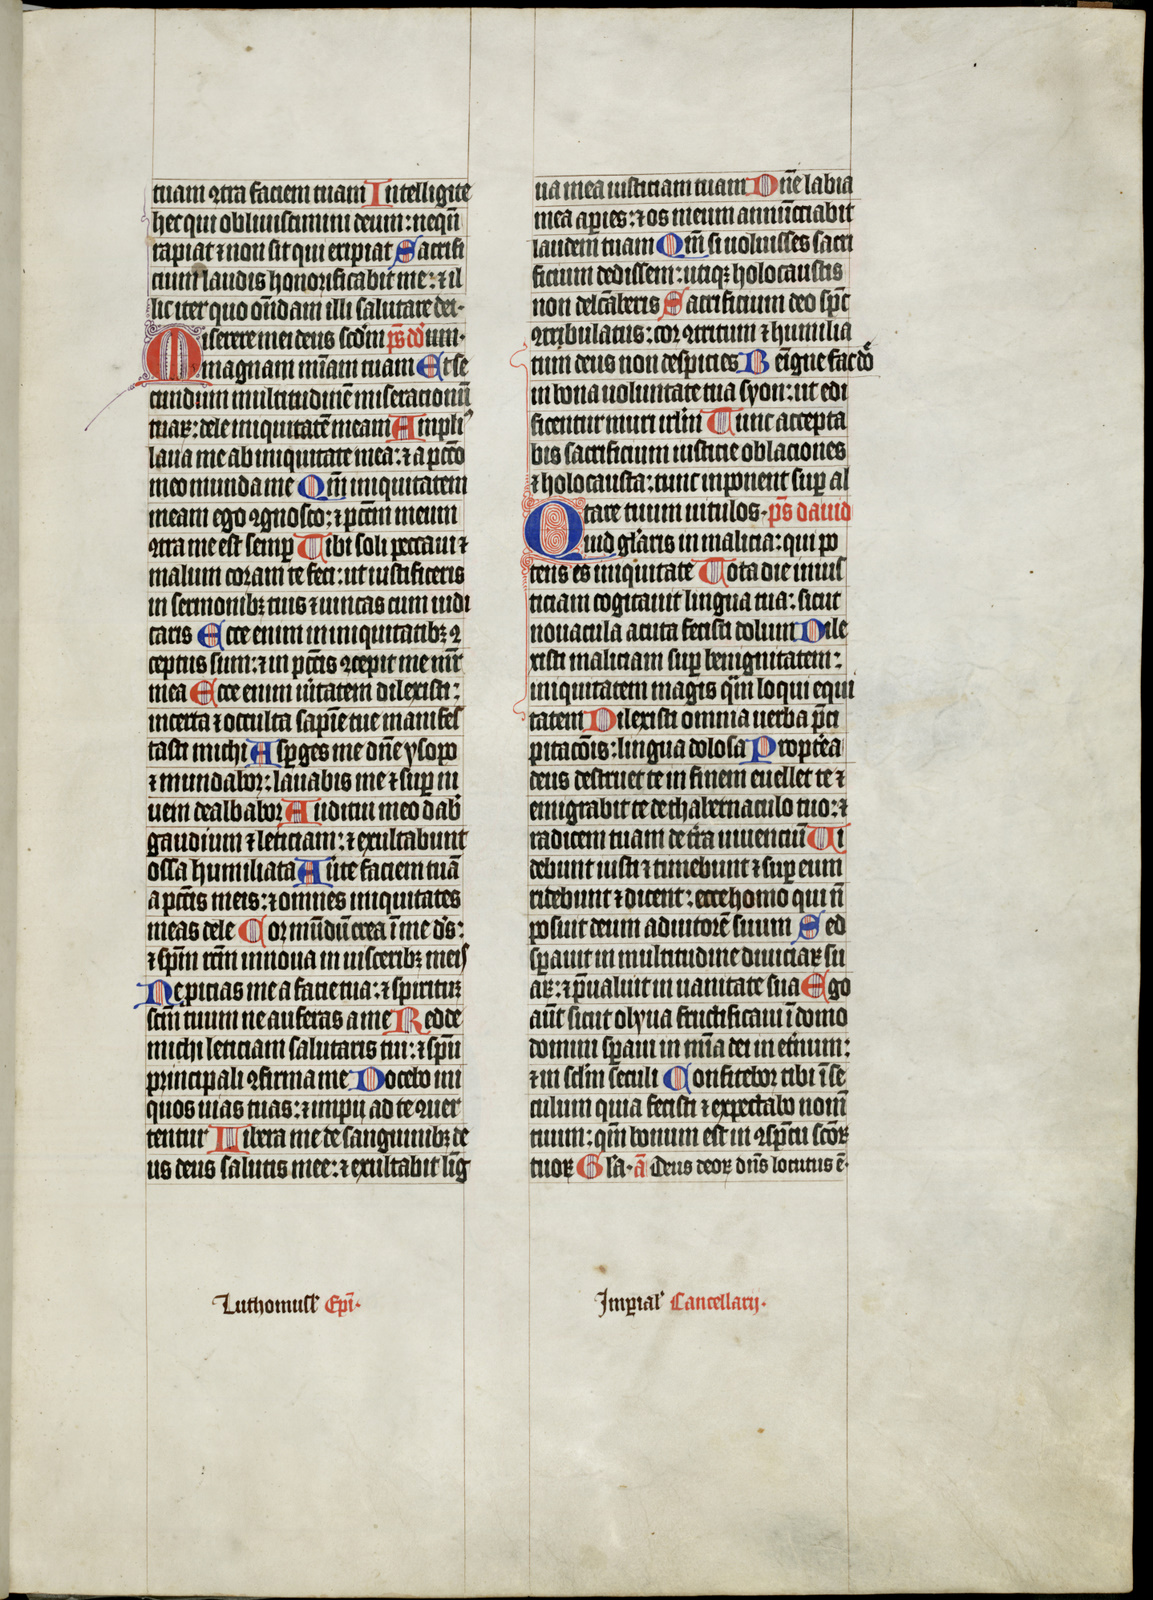 tuam ꝯtra faciem tuam Intelligite
hec qui obliuiscimini deum: nequn̄
rapiat ⁊ non sit qui eripiat Sacrifi
cium laudis honorificabit me: ⁊ il
lic iter quo on̄dam illi salutare dei.
Miserere mei deus scd'm ps̄ dd' um.
magnam mīam tuam Et se
cundum multitudinē miseracionū
tuaꝝ: dele iniquitatē meam Ampliꝰ
laua me ab iniquitate mea: ⁊ a pcc̄o
meo munda me Qm̄ iniquitatem
meam ego ꝯgnosco: ⁊ pcc̄m meum
ꝯtra me est semꝑ Tibi soli peccaui ⁊
malum coram te feci: ut iustificeris
in sermonibꝫ tuis ⁊ uincas cum iudi
caris Ecce enim in iniquitatibꝫ ꝯ
ceptus sum: ⁊ in pcc̄is ꝯcepit me mr̄
mea Ecce enim u'itatem dilexisti:
incerta ⁊ occulta sapīe tue manifes
tasti michi Asꝑges me dn̄e ysopo
⁊ mundabor: lauabis me ⁊ suꝑ ni
uem dealbabor Auditui meo dab'
gaudium ⁊ leticiam: ⁊ exultabunt
ossa humiliata Au'te faciem tuā
a pcc̄is meis: ⁊ omnes iniquitates
meas dele Cor mūdū crea ī me ds̄:
⁊ spm̄ rcm̄ innoua in uisceribꝫ meis
Ne ꝓicias me a facie tua: ⁊ spiritūꝫ
scm̄ tuum ne auferas a me Redde
michi leticiam salutaris tui: ⁊ spū
principali ꝯfirma me Docebo ini
quos uias tuas: ⁊ impii ad te ꝯuer
tentur Libera me de sanguinibꝫ de
us deus salutis mee: ⁊ exultabit lı̄g
ua mea iusticiam tuam Dn̄e labia
mea aꝑies: ⁊ os meum annūcciabit
laudem tuam Qm̄ si uoluisses sacri
ficium dedissem: utiqꝫ holocaustis
non delc̄aberis Sacrificium deo spc̄
ꝯtribulatus: cor ꝯtritum ⁊ humilia
tum deus non despicies Beı̄gne fac dō
in bona uoluntate tua syon: ut edi
ficentur muri irl'm Tunc accepta
bis sacrificium iusticie oblaciones
⁊ holocausta: tunc inponent suꝑ al
tare tuum uitulos. ps̄ dauid
Quid gl'aris in malicia: qui po
tens es iniquitate Tota die inius
ticiam cogitauit lingua tua: sicut
nouacula acuta fecisti dolum Dile
xisti maliciam suꝑ benignitatem:
iniquitatem magis qͣm loqui equi
tatem Dilexisti omnia uerba p̄ci
pitacōis: lingua dolosa Propt'ea
deus destruet te in finem euellet te ⁊
emigrabit te de thabernaculo tuo: ⁊
radicem tuam de t'ra uiuenciū Ui
debunt iusti ⁊ timebunt ⁊ suꝑ eum
ridebunt ⁊ dicent: ecce homo qui n̄
posuit deum adiutorē suum Sed
sꝑauit in multitudine diuiciaꝝ su
aꝝ: ⁊ p̄ualuit in uanitate sua Ego
aūt sicut olyua fructificaui ī domo
domini sꝑaui in mīa dei in et'num:
⁊ in scl'm seculi Confitebor tibi ī se
culum quia fecisti ⁊ expectabo nom̄
tuum: qm̄ bonum est in ꝯspc̄tu sc̄oꝝ
tuoꝝ Gl'a. ā Deus deoꝝ dn̄s locutus ē.
Luthomusl' Epī.
Imꝑial' Cancellarij.